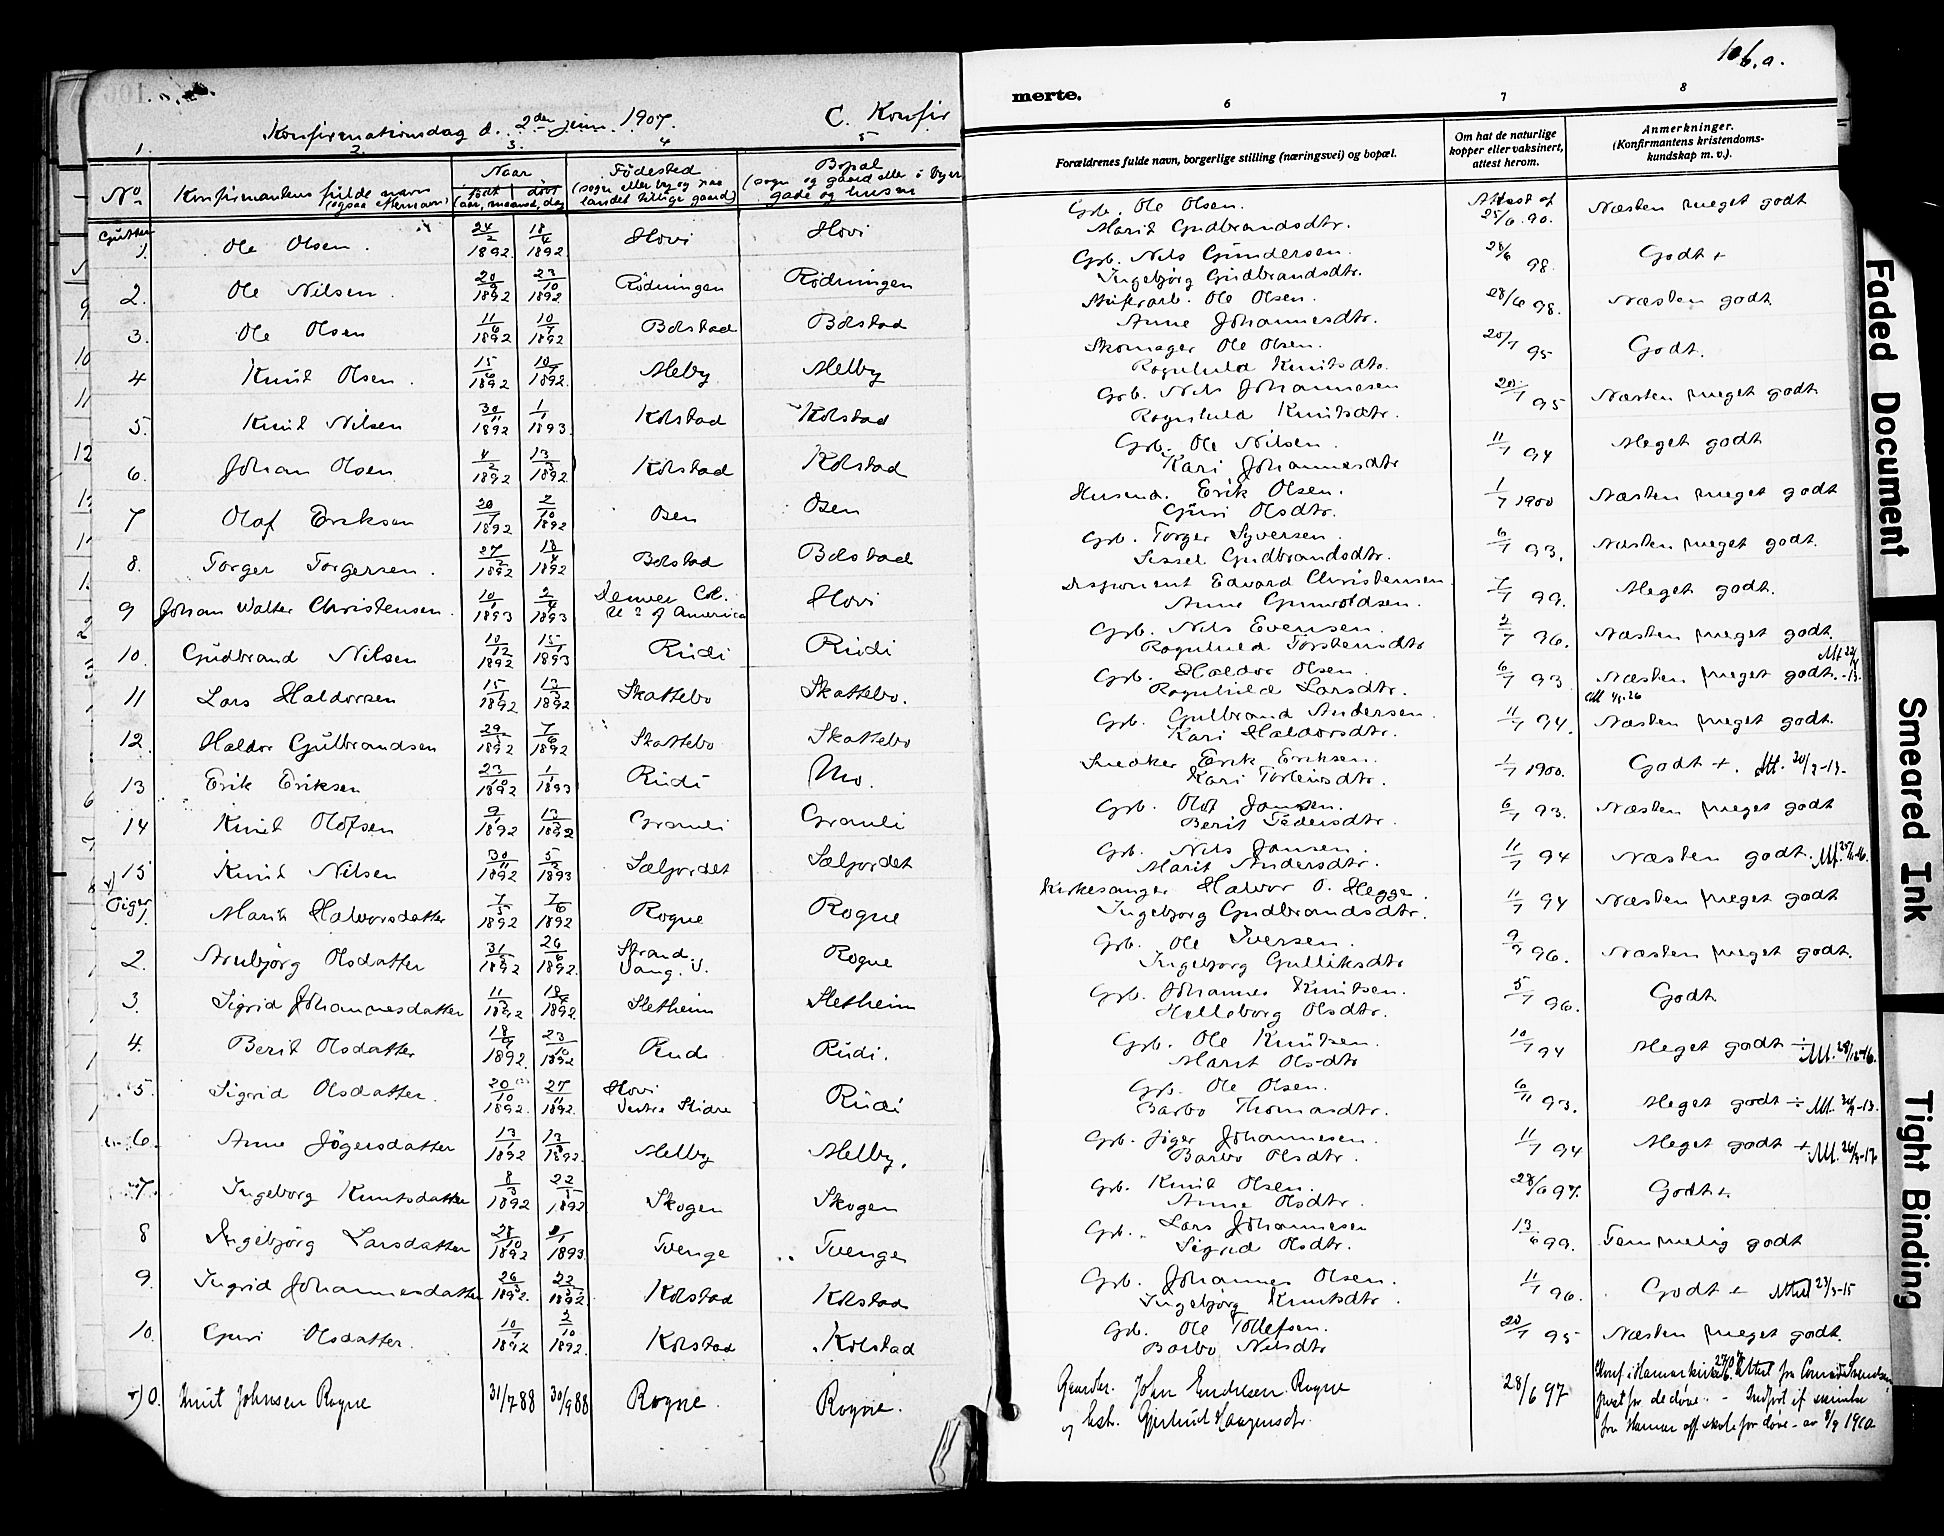 106.a.
C. Konfir
merte.
Konfirmationsdag d. 2den juni 1907.
1. 2. 3. 4 5 6 7 8
No Konfirmantens fulde navn (ogsaa efternavn) Naar født døbt (aar, maaned, dag) Fødested (sogn eller by og paa landet tillige gaard) Bopæl (sogn og gaard eller i byer gade og husnr
Forældrenes fulde navn, borgerlige stilling (næringsvei) og bopæl.
Om hat de naturlige kopper eller vaksinert, attest herom.
Anmerkninger. (Konfirmantens kristendoms-kundskap m. v.).
Gutter
1. Ole Olsen. 24/2 1892 18/4 1892 Hovi Hovi Grb. Ole Olsen. Marit Gudbrandsdtr. Attest af 25/6 90. Næsten meget godt
2. Ole Nilsen. 20/9 1892 23/10 1892 Rødningen Rødningen Grb. Nils Gundersen. Ingebjørg Gudbrandsdtr. 28/6 98. Godt +
3. Ole Olsen 11/6 1892 10/7 1892 Bolstad Bolstad Ole Olsen. Anne Johannesdtr. 28/6 98. Næsten godt
4 Knut Olsen. 15/6 1892 10/7 1892. Melby Melby Skomager Ole Olsen. Ragnhild Knutsdtr. 20/1 95 Godt.
5. Knut Nilsen 30/11 1892 1/1 1893. Kolstad Kolstad Grb. Nils Johannesen Ragnhild Knutsdtr. 20/1 95 Næsten meget godt
6. Johan Olsen. 4/2 1892 13/3 1892 Kolstad Kolstad Grb. Ole Nilsen. Kari Johannesdtr 11/7 94 Meget godt
7 Olaf Eriksen 20/7 1892 2/10 1892 Osen Osen Husmd. Erik Olsen. Guri Olsdtr. 1/7 1900 Næsten meget godt
8. Torger Torgersen. 27/2 1892 18/4 1892 Bolstad Bolstad Grb. Torger Syversen. Sissel Gudbrandsdtr. 6/7 93. Næsten meget godt.
9 Johan Walter Christensen. 10/1 1893 2/4 1893 Denver Col. U S of America Hovi Disponent Edvard Christensen. Anne Gunvoldsen. 7/7 99. Meget godt.
10. Gudbrand Nilsen 10/12 1892 15/1 1893 Rudi Rudi Grb. Nils Evensen. Ragnhild Torstensdtr 2/7 96. Næsten meget godt.
11 Lars Haldorsen 15/1 1892 13/3 1892 Skattebo Skattebo. Grb. Haldor Olsen. Ragnhild Larsdtr. 6/7 93 Næsten meget godt.
12. Haldor Gulbrandsen 29/5 1892 7/6 1892 Skattebo Skattebo Grb. Gulbrand Andersen. Kari Haldorsdtr. 11/7 94. Næsten meget godt.
13 Erik Eriksen 23/10 1892 1/1 1893 Rudi Mo. Snedker Erik Eriksen. Kari Torleivsdtr. 1/7 1900. Godt +. Att. 20/3-13.
14 Knut Olofsen 9/1 1892 13/3 1892 Granli Granli Grb. Olof Jansen. Berit Pedersdtr. 6/7 93. Næsten meget godt
15 Knut Nilsen 30/11 1892 5/2 1893 Sæljordet Sæljordet Grb. Nils Jansen. Marit Andersdtr. 11/7 94 Næsten godt.
Piger
1. Marit Halvorsdatter 7/5 1892 7/6 1892 Rogne Rogne Kirkesanger Halvor O. Hegge. Ingebjørg Gudbrandsdtr. 11/7 94 Næsten meget godt
2. Arnbjørg Olsdatter 31/5 1892 26/6 1892. Strand. Vang. V. Rogne Grb. Ole Iversen. Ingebjørg Gulliksdtr 9/7 96. Næsten meget godt.
3. Sigrid Johannesdatter 11/2 1892 18/4 1892. Sletheim Sletheim Grb. Johannes Knutsen. Helleborg Olsdtr. 5/7 96. Godt
4. Berit Olsdatter 18/9 1892. 23/10 1892 Rudi Rudi. Grb. Ole Knutsen. Marit Olsdtr 10/7 94 Meget godt ÷
5. Sigrid Olsdatter. 20/10 1892. 27/11 1892. Hovi Vestre Slidre Rudi Grb. Ole Olsen. Barbo Thomasdtr. 6/7 93. Meget godt ÷
6. Anne Jøgersdatter 13/1 1892 13/3 1892. Melby Melby. Grb. Jøger Johannesen. Barbo Olsdtr. 11/7 94 Meget godt +
7. Ingeborg Knutsdatter 8/3 1892 22/5 1892 Skogen Skogen Grb. Knut Olsen. Anne Olsdtr. 28/6 97. Godt+
8 Ingebjørg Larsdatter 28/10 1892 1/1 1893. Tvenge Tvenge Grb. Lars Johannesen Sigrid Olsdtr. 13/6 99. Temmelig godt
9. Ingrid Johannesdatter 26/3 1892. 22/5 1892. Kolstad Kolstad Grb. Johannes Olsen. Ingebjørg Knutsdtr. 11/7 96. Godt + Attest 23/3-15
10. Guri Olsdatter. 10/7 1892 2/10 1892. Kolstad Kolstad Grb. Ole Tollefsen. Barbo Nilsdtr 20/1 95 Næsten meget godt.
0. Knut Johnsen Rogne 31/7 88 30/9 88 Rogne. Rogne. Gaardbr. John Endresen Rogne og hst. Gjertrud Haagensdtr. 28/6 97 Konf. i Hamar kirke Attest fra Conrad Svendsen, prest for de døve. - Indført ef. skrivelse fra Hamar off. skole for døve - av 8/9 1910
Faded Document
Smeared Ink
Tight Binding